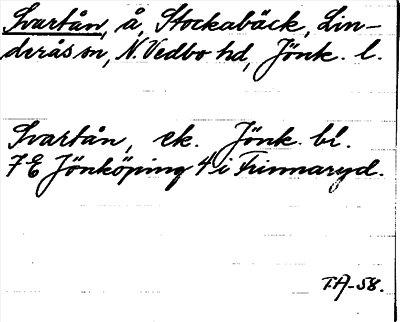 Svartån, å, Stockabäck, Lin-
derås sn, N. Vedbo hd, Jönk. l.
Svartån, ek. Jönk. bl.
7E Jönköping 4 i Frinnaryd.
T.A-58.